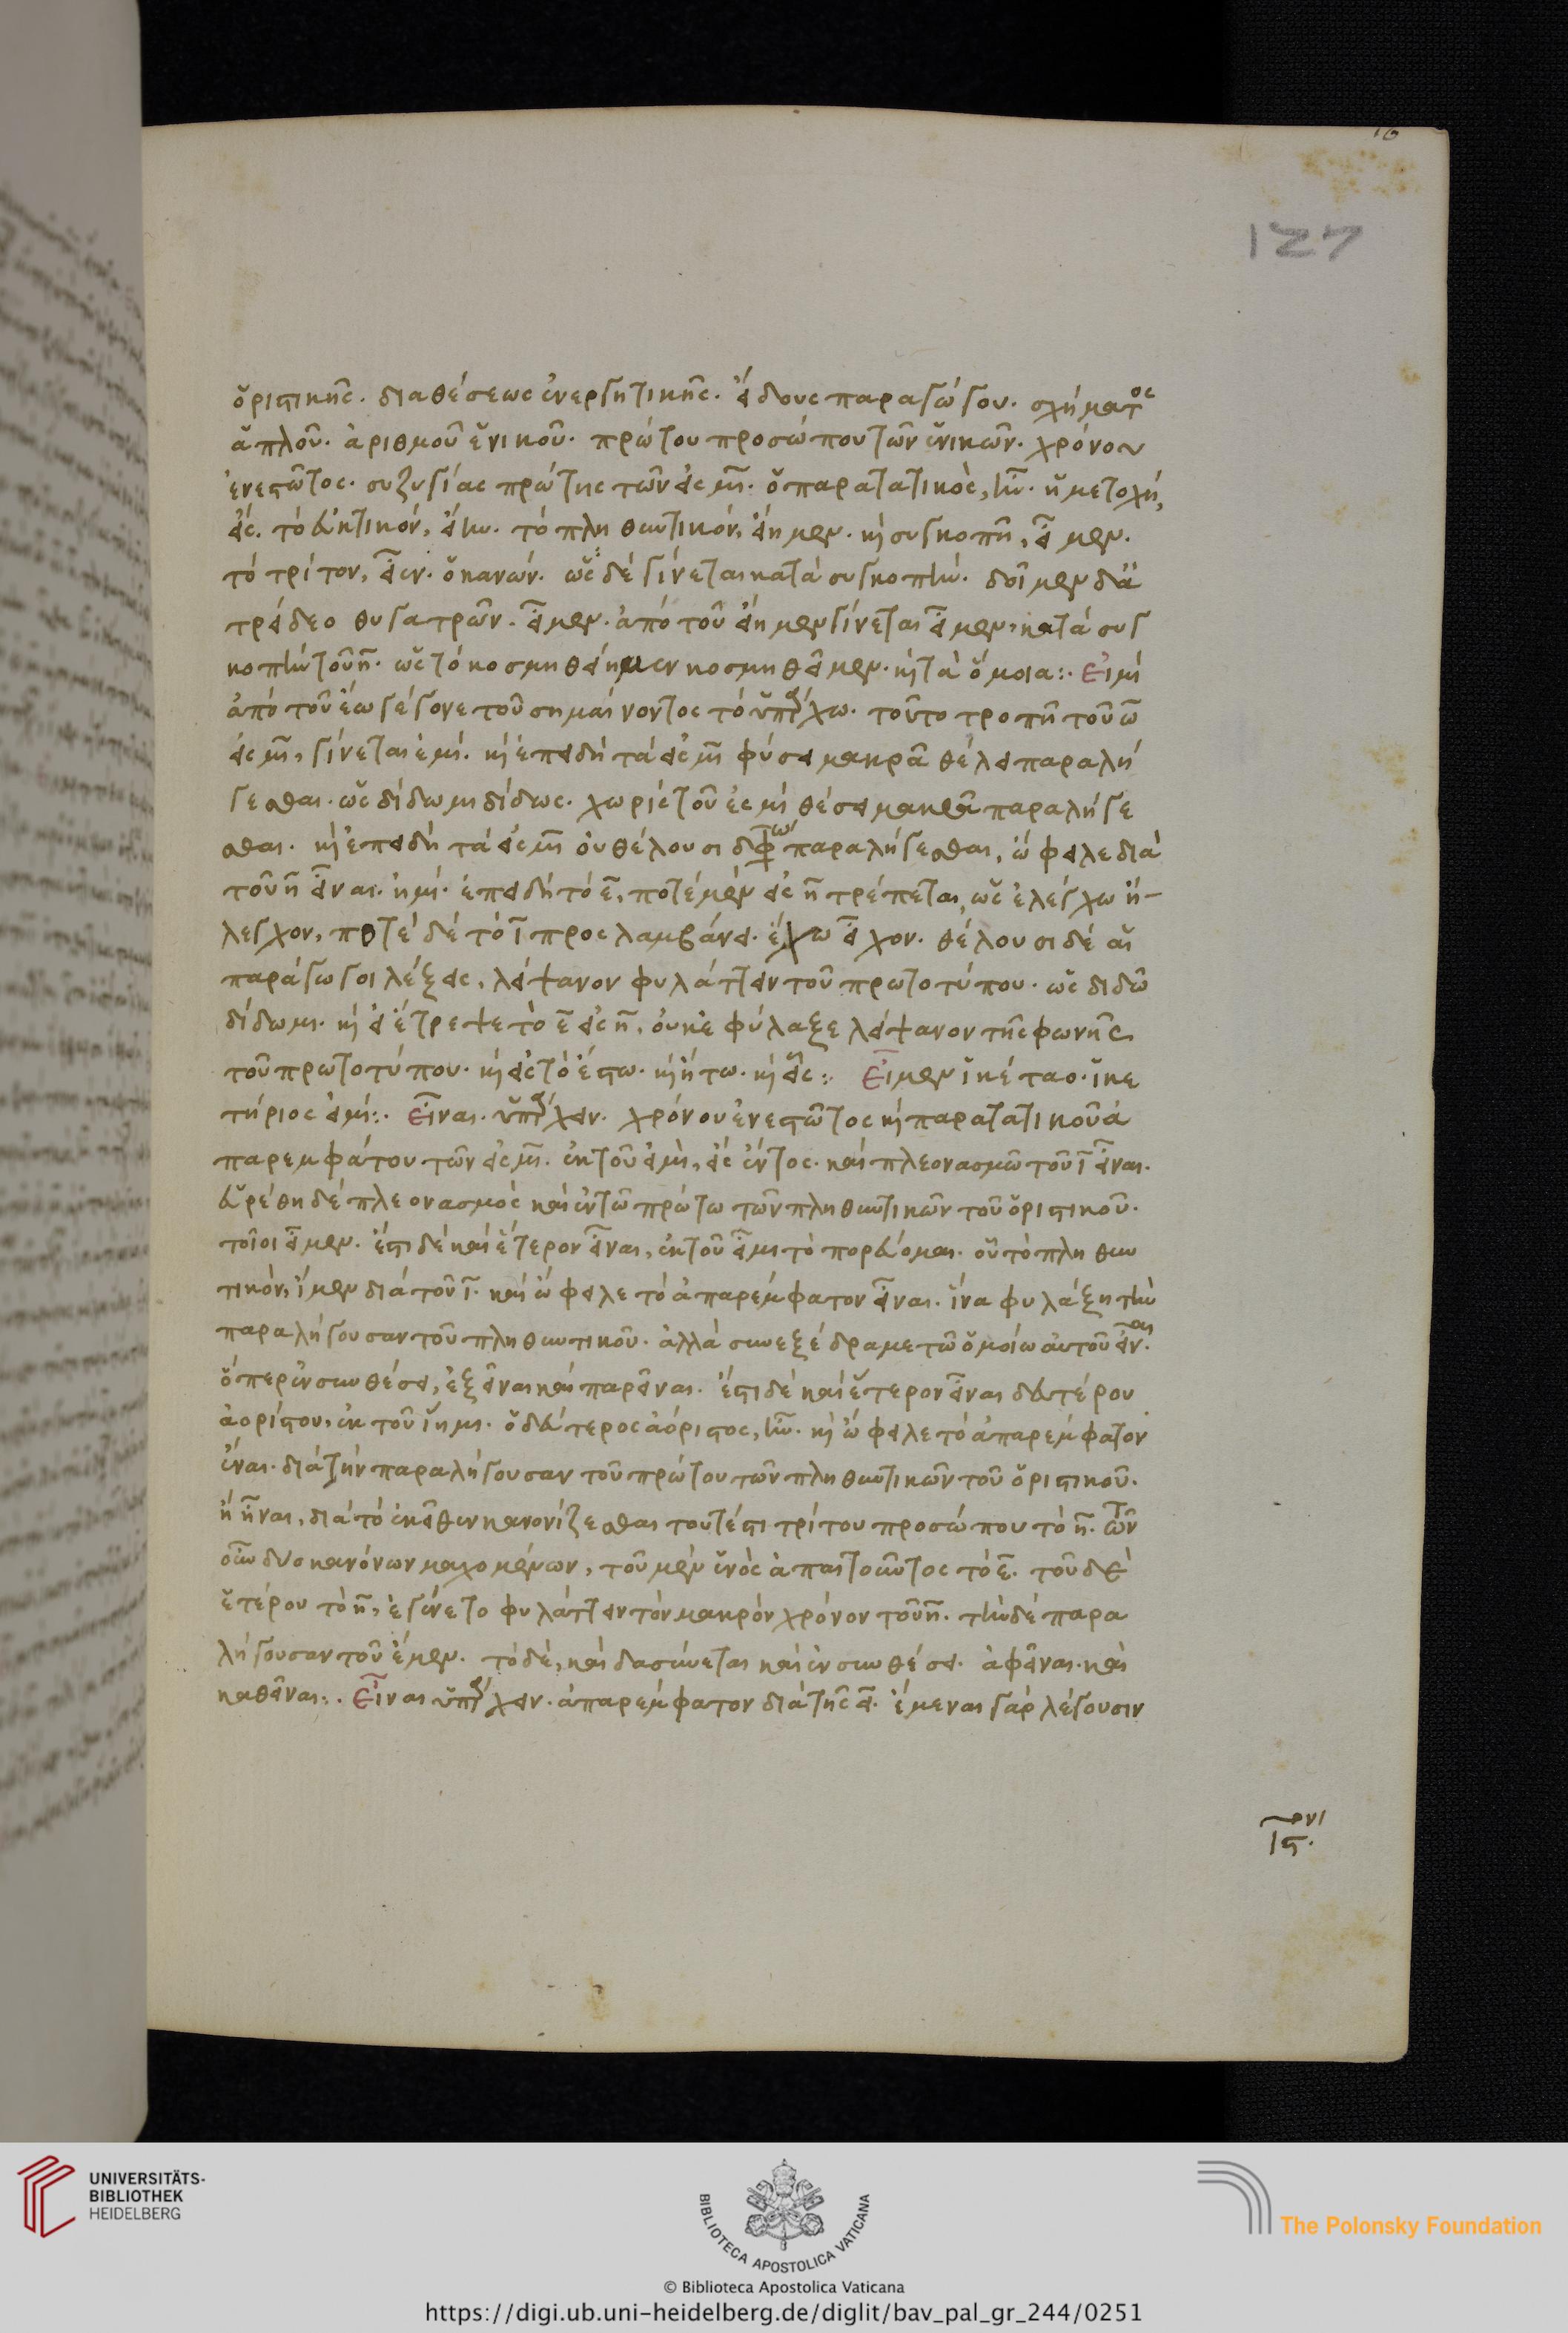 127
ὁριστικῆς. διαθέσεως ἐνεργητικῆς. εἴδους παραγώγου. σχήματος
ἁπλοῦ. ἀριθμοῦ ἑνικοῦ. πρώτου προσώπου τῶν ἑνικῶν. χρόνου
ἐνεστῶτος. συζυγίας πρώτης τῶν εἰς μῑ. ὁ παρατατικὸς, ἦν. ἡ μετοχή,
εἵς. τὸ εὐκτικόν, εἴην. τὸ πληθυντικόν, εἴημεν. κὶ συγκοπῆ, εἶμεν.
τὸ τρίτον, εἶεν. ὁ κανών. ὡς δὲ γίνεται κατὰ συγκοπὴν. δοῖμεν
θυγατρῶν. εἶμεν. ἀπὸ τοῦ εἴημεν γίνεται εἶμεν, κατὰ συγ
κοπὴν τοῦ η̄. ὡς τὸ κοσμηθείημεν κοσμηθεῖμεν. κὶ τὰ ὅμοια:. Εἰμὶ
ἀπὸ τοῦ ἔω γέγονε τοῦ σημαίνοντος τὸ ὑπάρχω. τοῦτο τροπῆ τοῦ ω̄
εἰς μῑ, γίνεται ἐμί. κὶ ἐπειδὴ τὰ εἰς μῑ φύσει μακρᾶ θέλει παραλή
γεσθαι. ὡς δίδωμι δίδως. χωρὶς τοῦ ἐς μὶ θέσει μακρᾶ παραλήγε
σθαι. κὶ ἐπειδὴ τὰ εἰς μῑ οὐ θέλουσι παραλήγεσθαι, ὤφειλε διὰ
τοῦ η̄ εἶναι. ἠμί. ἐπειδὴ τὸ ε̄, ποτὲ μὲν εἰς η̄ τρέπεται, ὡς ἐλέγχω ἤ-
λεγχον, ποτὲ δὲ τὸ ῑ προσλαμβάνει. ἔχω εἶχον. θέλουσι δὲ αἱ
παράγωγοι λέξεις, λείψανον φυλάττειν τοῦ πρωτοτύπου. ὡς διδῶ
δίδωμι. κὶ εἰ ἔτρεψε τὸ ε̄ εἰς η̄, οὐκ ἐφύλαξε λείψανον τῆς φωνῆς
τοῦ πρωτοτύπου. κὶ εἰς τὸ ἔστω. κὶ ἤτω. κὶ εἷς:. Εἶμεν ἱκέταο. ἱκε
τήριος εἰμί:. Εἶναι. ὑπάρχειν. χρόνου ἐνεστῶτος κὶ παρατατικοῦ ἀ
παρεμφάτου τῶν εἰς μῑ. ἐκ τοῦ εἰμὶ, εἲς ἔντος. καὶ πλεονασμῶ τοῦ ῑ εἶναι.
εὑρέθη δὲ πλεονασμὸς καὶ ἐν τῶ πρώτω τῶν πληθυντικῶν τοῦ ὁριστικοῦ.
τοῖοι εἶμεν. ἔστι δὲ καὶ ἕτερον εἶναι, ἐκ τοῦ εἶμι τὸ πορεύομαι. οὗ τὸ πληθυν
τικὸν, ἴμεν διὰ τοῦ ῑ. καὶ ὤφειλε τὸ ἀπαρέμφατον εἶναι. ἵνα φυλάξη τὴν
παραλήγουσαν τοῦ πληθυντικοῦ. ἀλλὰ συνεξέδραμε τῶ ὁμοίω αὐτοῦ εἶναι.
ὅπερ ἐν συνθέσει, ἐξεῖναι καὶ παρεῖναι. ἔστι δὲ καὶ ἕτερον εἶναι δευτέρου
ἀορίστου, ἐκ τοῦ ἵημι. ὁ δεύτερος ἀόριστος, ἦν. κὶ ὤφειλε τὸ ἀπαρέμφατον
ἕναι. διὰ τὴν παραλήγουσαν τοῦ πρώτου τῶν πληθυντικῶν τοῦ ὁριστικοῦ.
ἢ ἧναι, διὰ τὸ ἐκεῖθεν κανονίζεσθαι τουτέστι τρίτου προσώπου τὸ η̄. τῶν
οὖν δύο κανόνων μαχομένων, τοῦ μὲν ἑνὸς ἀπαιτοῦντος τὸ ε̄. τοῦ δὲ
ἑτέρου τὸ η̄, ἐγίνετο φυλάττειν τὸν μακρὸν χρόνον τοῦ η̄. τὴν δὲ παρα
λήγουσαν τοῦ ἕμεν. τὸ δὲ, καὶ δασύνεται καὶ ἐν συνθέσει. ἀφεῖναι. καὶ
καθεῖναι:. Εἶναι ὑπάρχειν. ἀπαρέμφατον διὰ τῆς ει. ἔμεναι γὰρ λέγουσιν
ις.
UNIVERSITÄTS-
BIBLIOTHEK
HEIDELBERG
BIBLIOTECA APOSTOLICA VATICANA
The Polonsky Foundation
© Biblioteca Apostolica Vaticana
https://digi.ub.uni-heidelberg.de/diglit/bav_pal_gr_244/0251